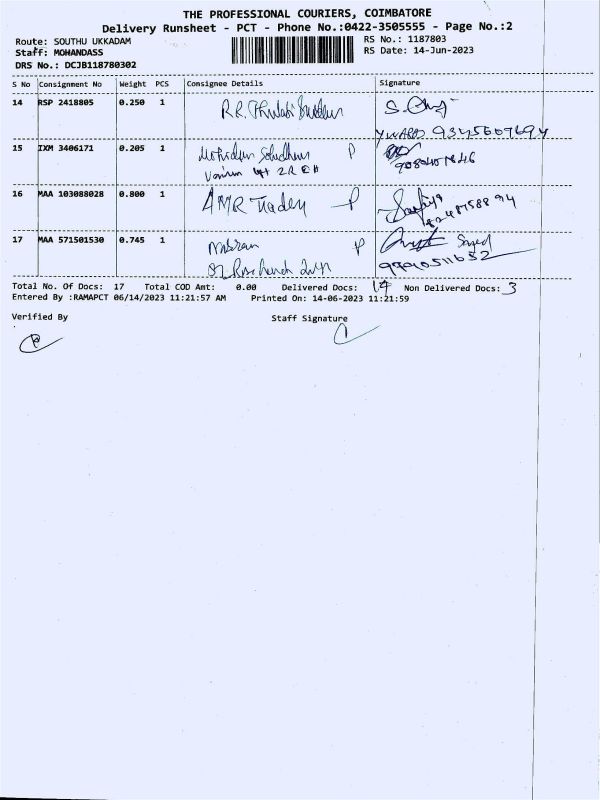 THE PROFESSIONAL COURIERS, COIMBATORE
Delivery Runsheet - PCT - Phone No.:0422-3505555 - Page No.:2
Route: SOUTHU UKKADAM RS No.: 1187803
Staff: MOHANDASS RS Date: 14-Jun-2023
DRS No.: DCJB118780302
S No Consignment No Weight PCS Consignee Details Signature
14 RSP 2418805 0.250 1 R.R.
15 IXM 3406171 0.205 1 P
16 MAA 103088028 0.800 1 AMR P
17 MAA 571501530 0.745 1 P Sayed
Total No. Of Docs: 17 Total COD Amt: 0.00 Delivered Docs: 14 Non Delivered Docs: 3
Entered By :RAMAPCT 06/14/2023 11:21:57 AM Printed On: 14-06-2023 11:21:59
Verified By Staff Signature